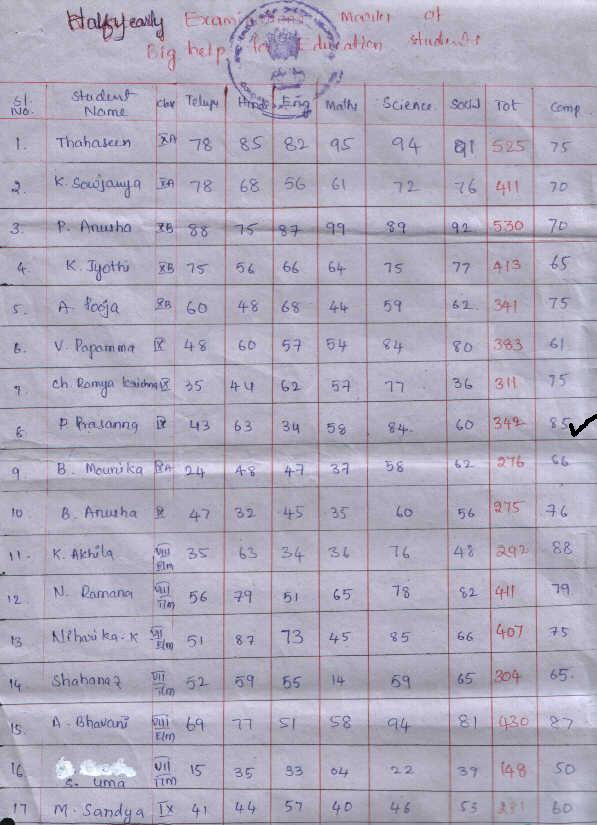 Halfyearly Examinations Marks of
Big help for Education students
Sl. No. Student Name Class Telugu Hindi Eng Maths Science Social Tot Comp
1. Thahaseen XA 78 85 82 95 94 91 525 75
2. K. Sowjanya XA 78 68 56 61 72 76 411 70
3. P. Anusha XB 88 75 87 99 89 92 530 70
4. K. Jyothi XB 75 56 66 64 75 77 413 65
5. A. Pooja XB 60 48 68 44 59 62. 341 75
6. V. Papamma IX 48 60 57 54 84 80 383 61
7. Ch. Ramya Krishna IX 35 44 62 57 77 36 311 75
8 P Prasanna IX 43 63 34 58 84. 60 342 85 ✓
9 B. Mounika IXA 24 48 47 37 58 62 276 66
10 B. Anusha IX 47 32 45 35 60 56 275 76
11. K. Akhila VIII E/m 35 63 34 36 76 48 292 88
12. N. Ramana VIII T/m 56 79 51 65 78 82 411 79
13 Niharika. K VII E/m 51 87 73 45 85 66 407 75
14 Shahanaz VII T/m 52 59 55 14 59 65 304 65.
15. A. Bhavani VIII E/m 69 77 51 58 94 81 430 87
16 S. Uma VII T/m 15 35 33 04 22 39 148 50
17 M. Sandya IX 41 44 57 40 46 53 281 60